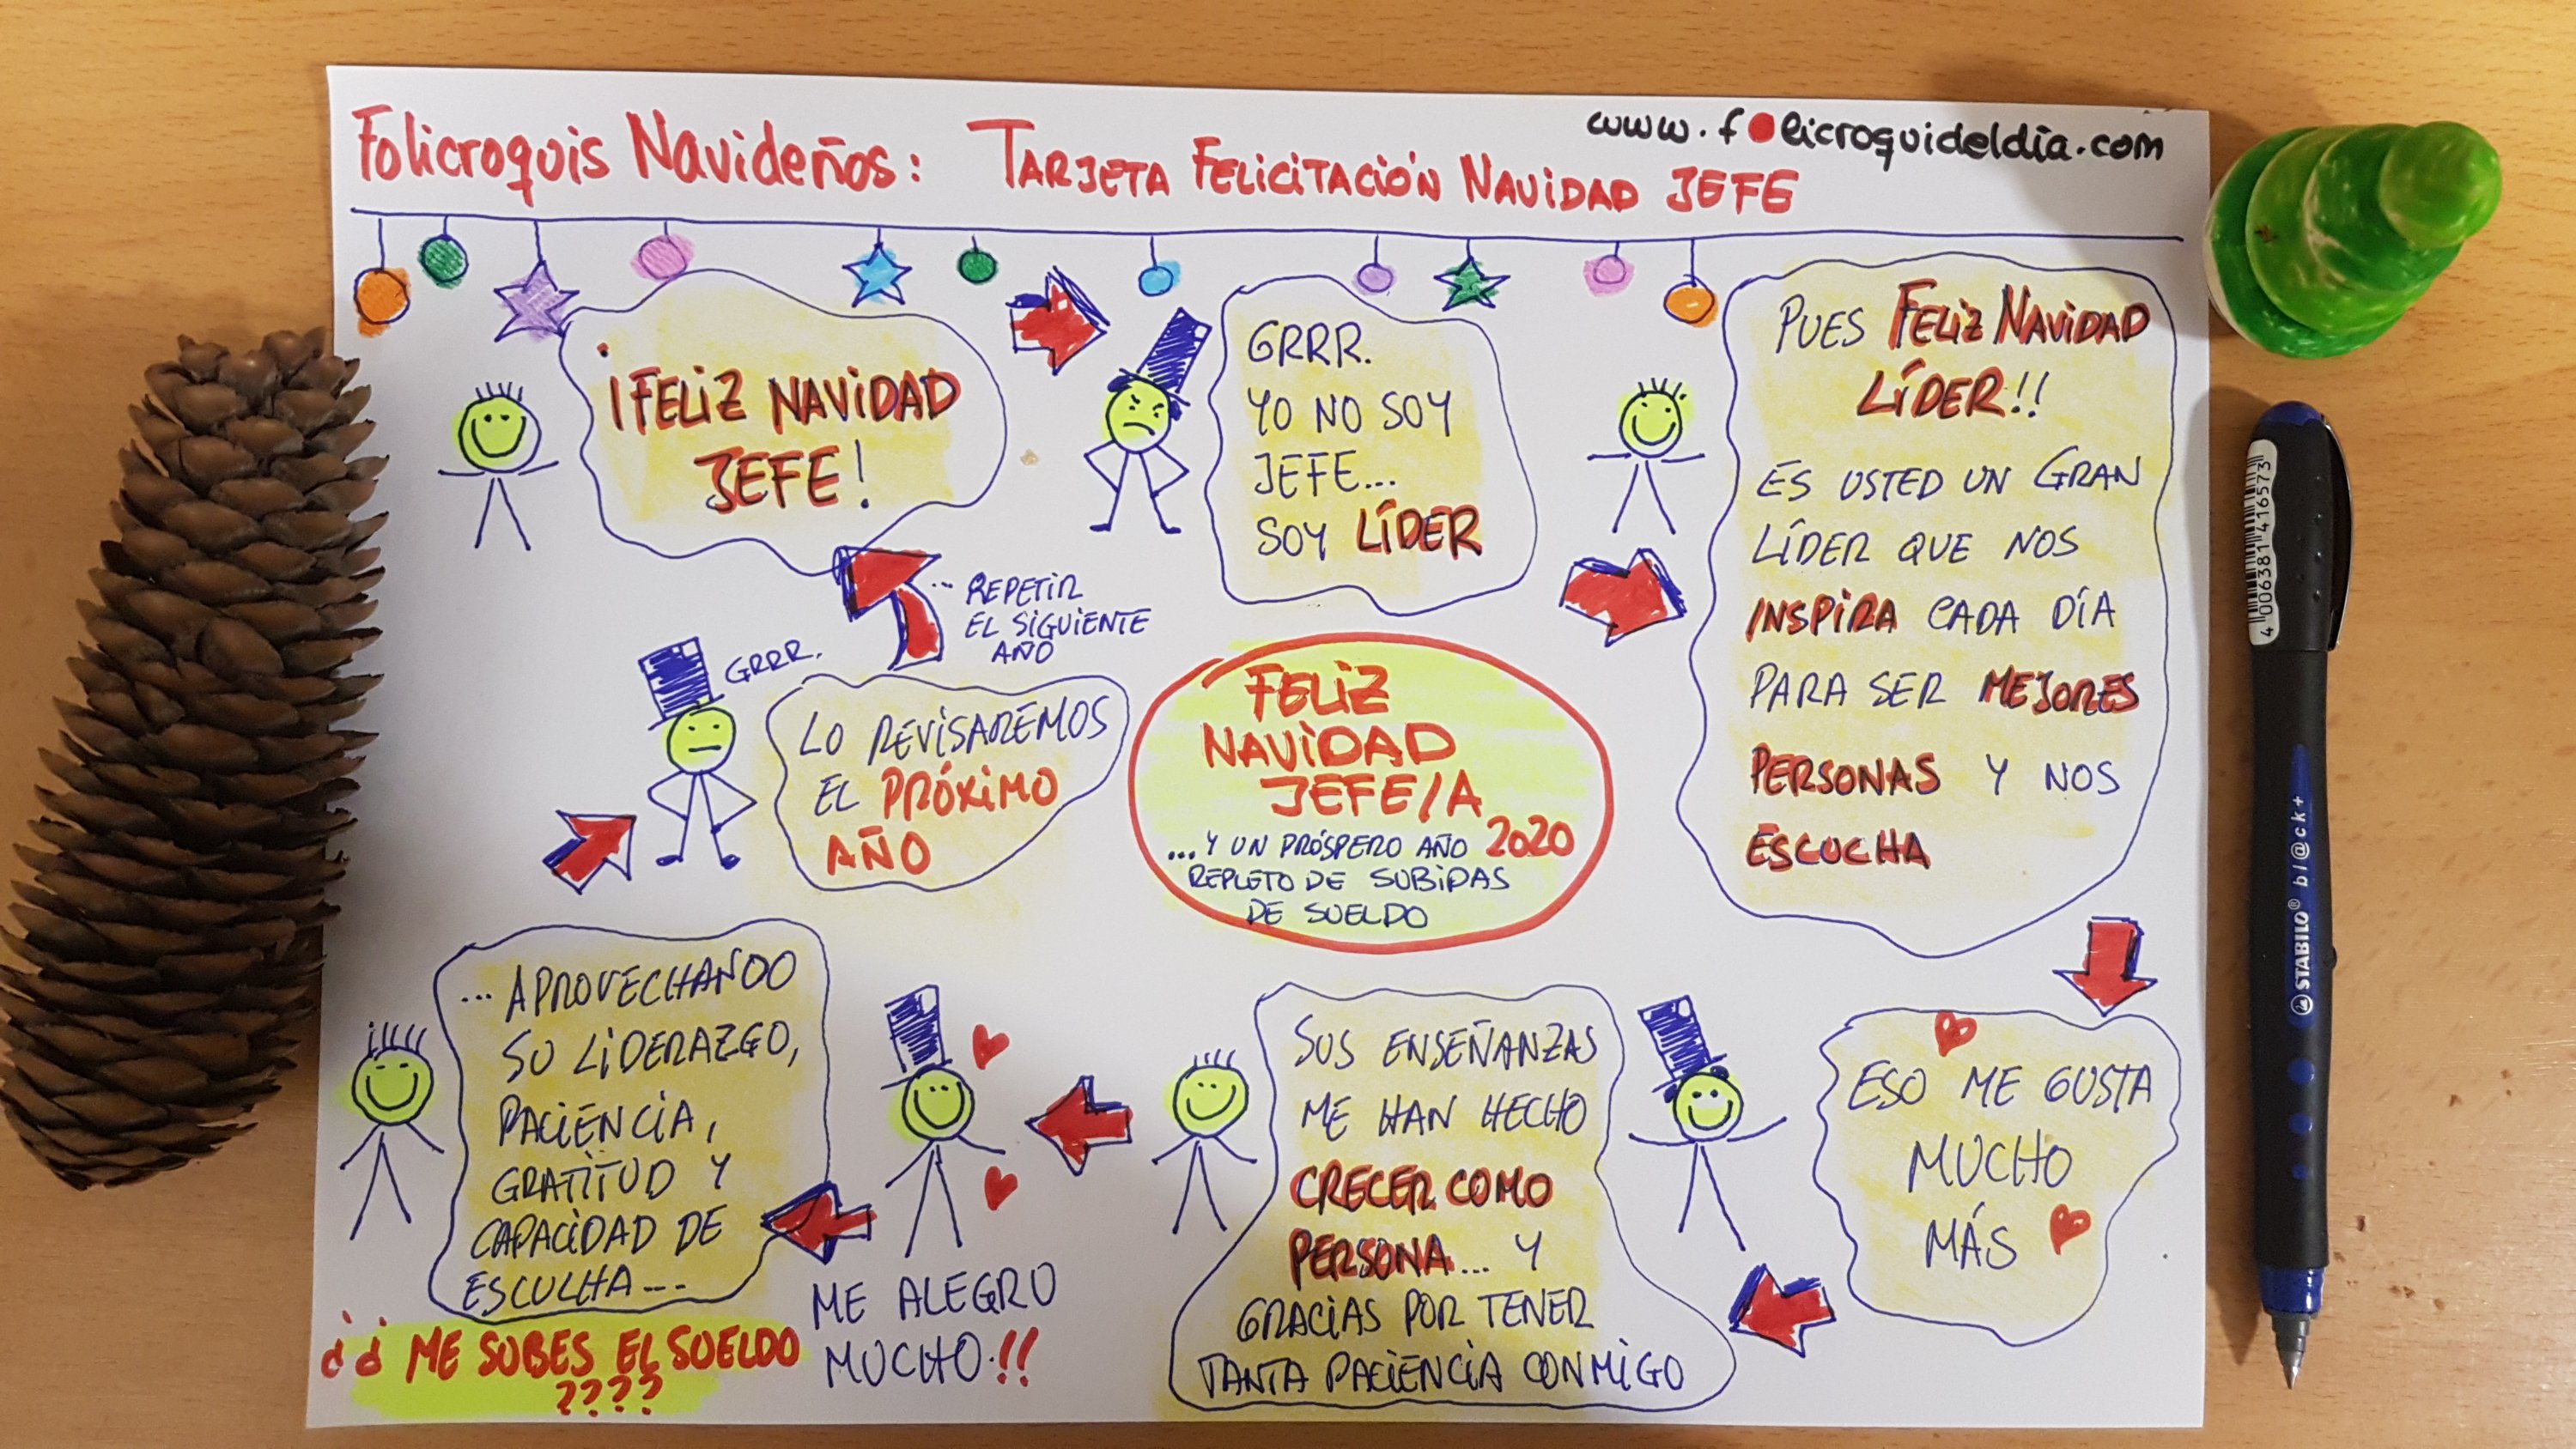 Folicroquis Navideños: TARJETA FELICITACIÓN NAVIDAD JEFE
www.folicroquideldia.com
¡FELIZ NAVIDAD
JEFE!
GRRR.
YO NO SOY
JEFE...
SOY LÍDER
PUES FELIZ NAVIDAD
LÍDER!!
ES USTED UN GRAN
LÍDER QUE NOS
INSPIRA CADA DÍA
PARA SER MEJORES
PERSONAS Y NOS
ESCUCHA
ESO ME GUSTA
MUCHO
MÁS
SUS ENSEÑANZAS
ME HAN HECHO
CRECER COMO
PERSONA... Y
GRACIAS POR TENER
TANTA PACIENCIA CONMIGO
ME ALEGRO
MUCHO!!
... APROVECHANDO
SU LIDERAZGO,
PACIENCIA,
GRATITUD Y
CAPACIDAD DE
ESCUCHA...
¿¿ ME SUBES EL SUELDO
????
GRRR.
LO REVISAREMOS
EL PRÓXIMO
AÑO
... REPETIR
EL SIGUIENTE
AÑO
FELIZ
NAVIDAD
JEFE/A
...Y UN PRÓSPERO AÑO 2020
REPLETO DE SUBIDAS
DE SUELDO
STABILO® bl@ck+
4 006381 416573